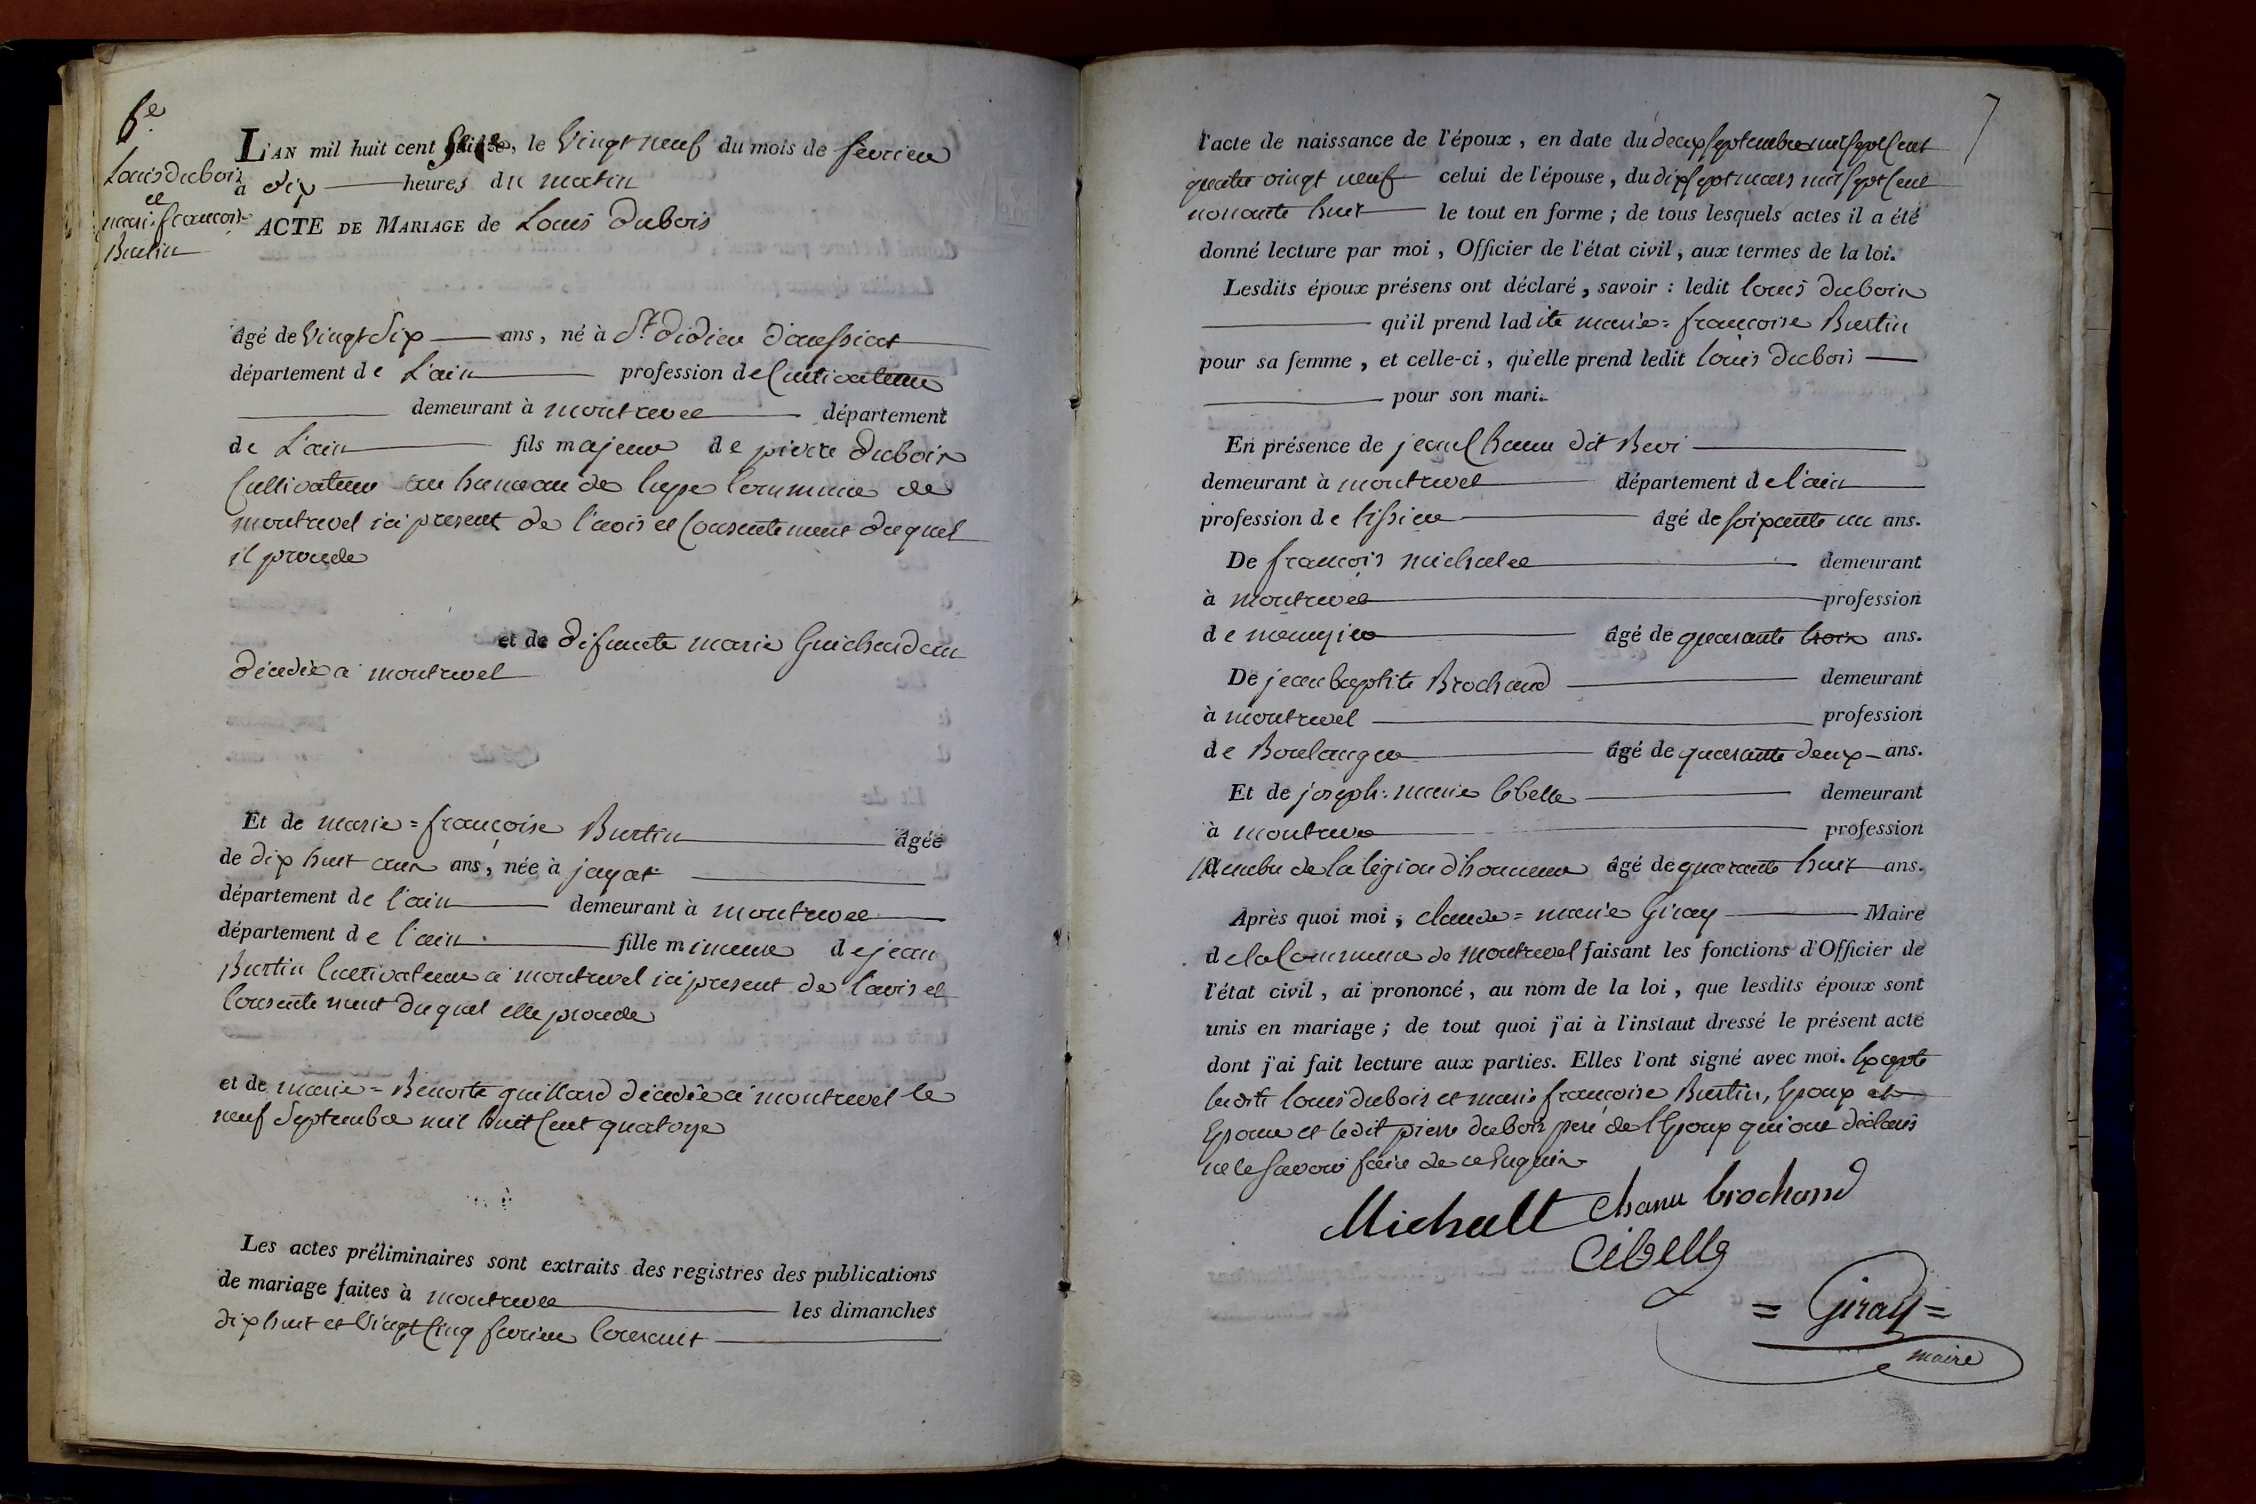 6e.
Louis dubois
et
marie françoise
Burtin
L'AN mil huit cent Seize, le Vingt neuf du mois de fevrier
à dix heures du matin
ACTE DE MARIAGE de Louis Dubois
âgé de Vingt Six ans, né à St. didier d'aussiat
département de L'ain profession de Cultivateur
demeurant à montrevel département
de L'ain fils majeur de pierre dubois
Cultivateur au hameau de Commune de
montrevel ici present de l'avis et Consentement duquel
il procede
et de difuncte marie Guichardan
décédée a montrevel
Et de marie=françoise Burtin âgée
de dix huit ans ans, née à jayat
département de l'ain demeurant à montrevel
département de l'ain fille mineure de jean
Burtin Cultivateur a montrevel ici present de l'avis et
Consentement duquel elle procede
et de marie=Benoite guillard décédée a montrevel le
neuf Septembre mil huit Cent quatorze
Les actes préliminaires sont extraits des registres des publications
de mariage faites à montrevel les dimanches
dix huit et Vingt Cinq fevrier Courant
7
l'acte de naissance de l'époux, en date du deux septembre mil sept Cent
quatre vingt neuf celui de l'épouse, du dix sept mars mil sept Cent
nonante huit le tout en forme; de tous lesquels actes il a été
donné lecture par moi, Officier de l'état civil, aux termes de la loi.
Lesdits époux présens ont déclaré, savoir: ledit louis dubois
qu'il prend ladite marie=françoise Burtin
pour sa femme, et celle-ci, qu'elle prend ledit louis dubois
pour son mari.
En présence de jean Chanu dit Bevi
demeurant à montrevel département de l'ain
profession de tissier âgé de soixante un ans.
De françois michalet demeurant
à montrevel profession
de menuzier âgé de quarante trois ans.
De jean baptiste Brochand demeurant
à montrevel profession
de Boulanger âgé de quarante deux ans.
Et de joseph=marie Cibelle demeurant
à montrevel profession
Membre de la légion d'honneur âgé de quarante huit ans.
Après quoi moi, claude=marie Giray Maire
de la Commune de montrevel faisant les fonctions d'Officier de
l'état civil, ai prononcé, au nom de la loi, que lesdits époux sont
unis en mariage; de tout quoi j'ai à l'instaut dressé le présent acte
dont j'ai fait lecture aux parties. Elles l'ont signé avec moi. Excepté
lesdits louis dubois et marie françoise Burtin, Epoux et
Epouse et ledit pierre dubois pere de l'Epoux qui ont déclarés
ne le Savoir faire de ce Enquis
Michalt chanu brochand
Cibelle
= Giray =
maire